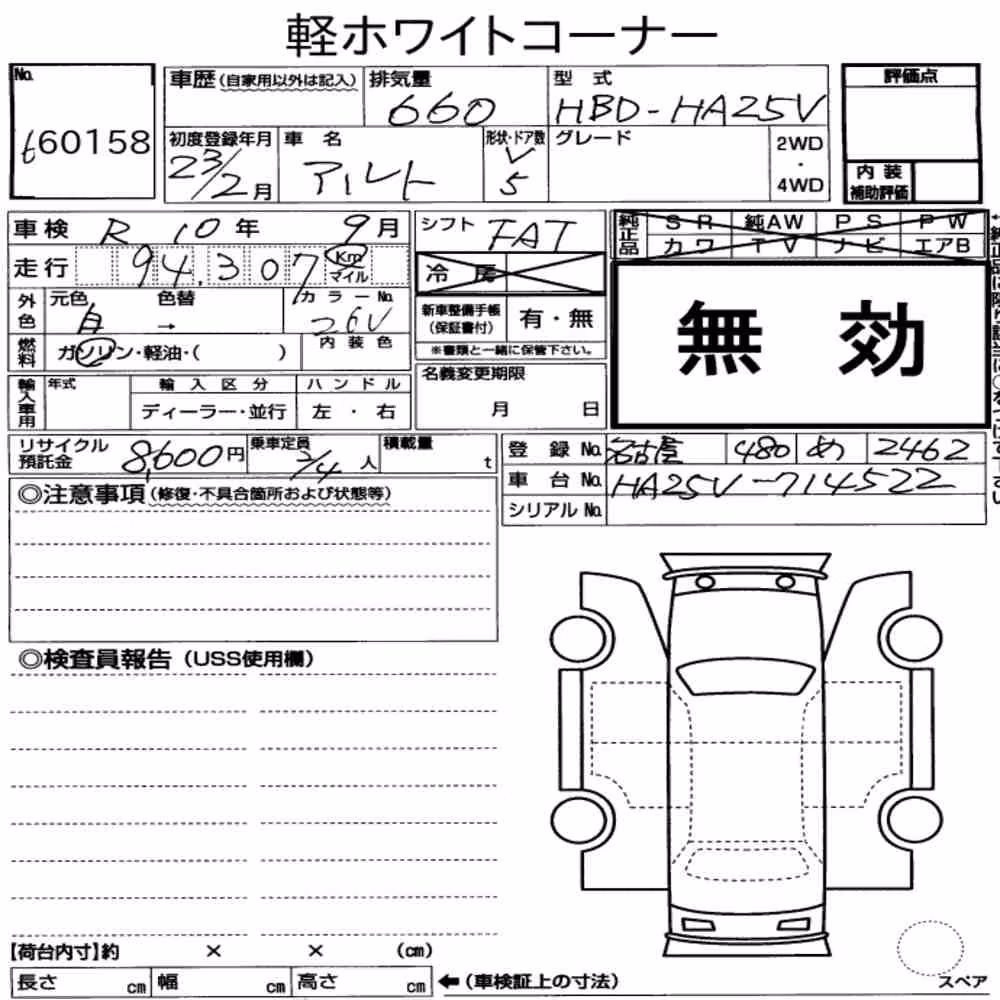 軽ホワイトコーナー
No. 60158
車歴(自家用以外は記入) 排気量 660 型式 HBD-HA25V
初度登録年月 23/2月 車名 アルト 形状・ドア数 V 5 グレード 2WD・4WD
評価点
内装補助評価
車検 R 10年 9月
走行 94,307 Km マイル
外色 元色 白 色替 → カラーNo. 26V
燃料 ガソリン・軽油・( ) 内装色
輸入車用 年式 輸入区分 ハンドル
ディーラー・並行 左・右
シフト FAT
冷房
新車整備手帳(保証書付) 有・無
※書類と一緒に保管下さい。
名義変更期限
月 日
純正品 SR 純AW PS PW
カワ TV ナビ エアB
無効
リサイクル預託金 8,600円 乗車定員 2/4人 積載量 t
登録No. 名古屋 480 め 2462
車台No. HA25V-714522
シリアルNo.
◎注意事項(修復・不具合箇所および状態等)
◎検査員報告(USS使用欄)
【荷台内寸】約 × × (cm)
長さ cm 幅 cm 高さ cm ←(車検証上の寸法)
スペア